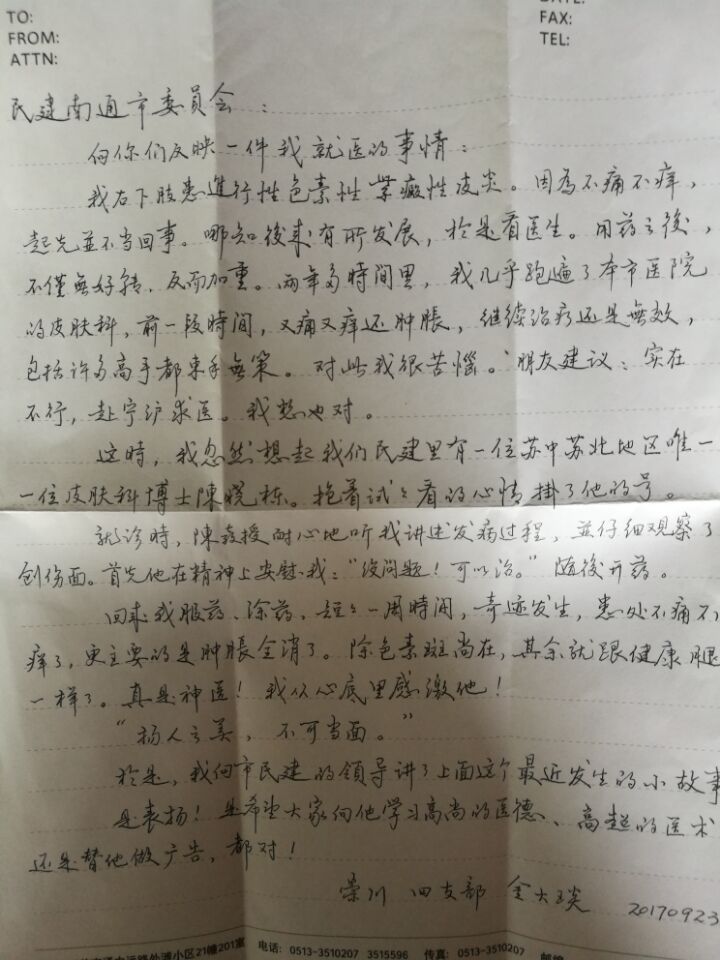 TO:
FROM:
ATTN:
DATE:
FAX:
TEL:
民建南通市委員会：
向你们反映一件我就医的事情：
我右下肢患進行性色素性紫癜性皮炎。因為不痛不痒，
起先並不当回事。哪知後来有所发展，於是看医生。用药之後，
不僅無好转，反而加重。两年多時間里，我几乎跑遍了本市医院
的皮肤科，前一段時間，又痛又痒还肿脹，继续治疗还是無效，
包括许多高手都束手無策。对此我很苦惱。朋友建议：实在
不行，赴宁沪求医。我想也对。
这時，我忽然想起我们民建里有一位苏中苏北地区唯一
一位皮肤科博士陳晓栋。抱着试々看的心情掛了他的号。
就诊時，陳教授耐心地听我讲述发病过程，並仔细观察了
创伤面。首先他在精神上安慰我：“没问题！可以治。”随後开药。
回来我服药、涂药，短々一周時間，奇迹发生，患处不痛不
痒了，更主要的是肿脹全消了。除色素斑尚在，其余就跟健康腿
一样了。真是神医！我从心底里感激他！
“扬人之美，不可当面。”
於是，我向市民建的领导讲了上面这个最近发生的小故事
是表扬！是希望大家向他学习高尚的医德、高超的医术
还是替他做广告，都对！
崇川 四支部 金大 20170923
路外滩小区21幢201室 电话：0513-3510207 3515596 传真：0513-3510207 邮编